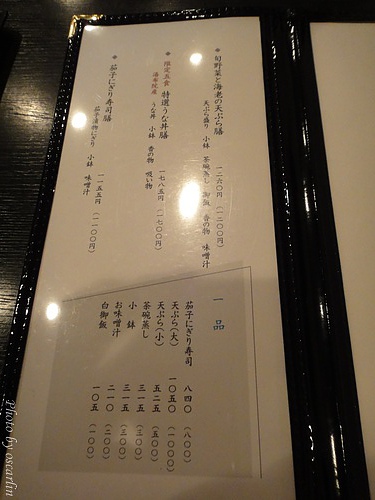 旬野菜と海老の天ぷら膳
一二六〇円(一二〇〇円)
天ぷら盛り 小鉢 茶碗蒸し 御飯 香の物 味噌汁
限定五食 特選うな丼膳
一七八五円(一七〇〇円)
うな丼 小鉢 香の物 吸い物
茄子にぎり寿司膳
一一五五円(一一〇〇円)
茄子漬物にぎり 小鉢 味噌汁
一品
茄子にぎり寿司 八四〇(八〇〇)
天ぷら(大) 一〇五〇(一〇〇〇)
天ぷら(小) 五二五(五〇〇)
茶碗蒸し 三一五(三〇〇)
小鉢 三一五(三〇〇)
お味噌汁 二一〇(二〇〇)
白御飯 一〇五(一〇〇)
Photo by oscarlin